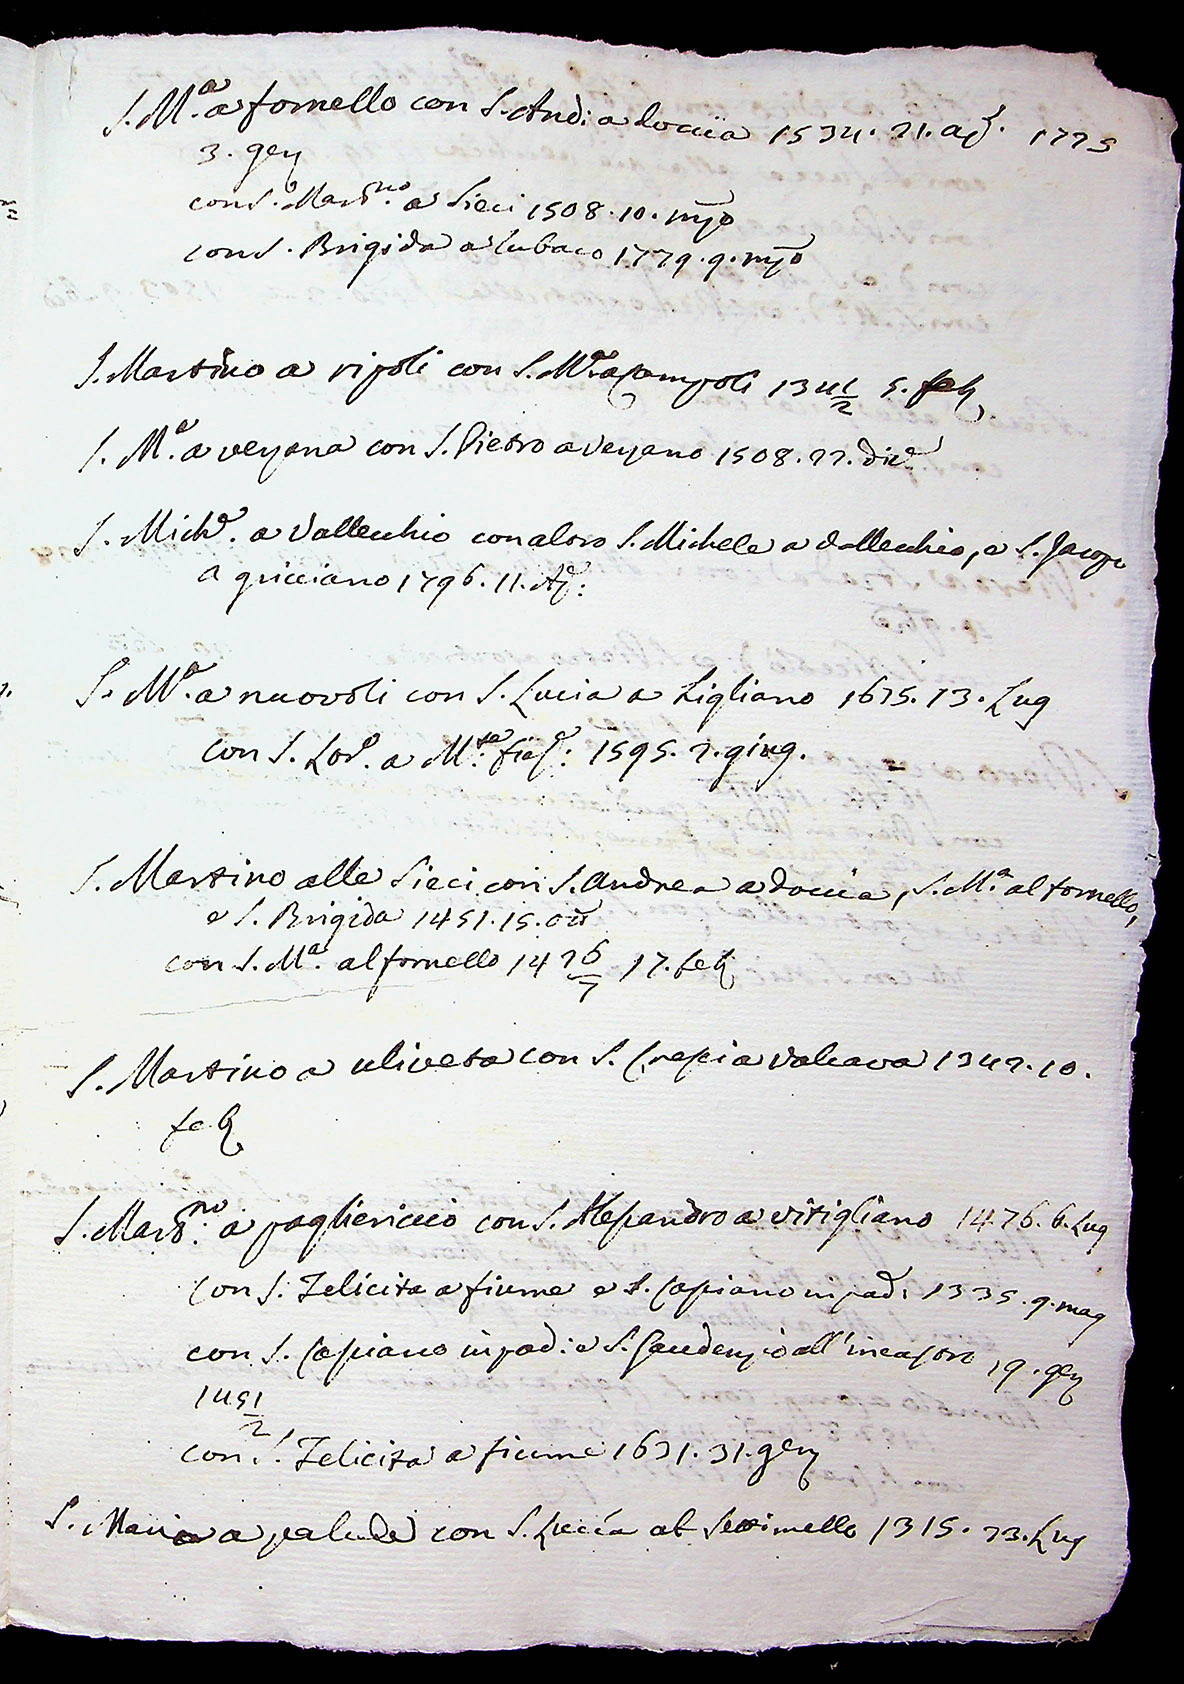 S. M.ª a fornello con S. And: a doccia 1534. 21. ag.
3. gen
con S. Mart.no a Sieci 1508. 10. mgo
con S. Brigida a Lubaco 1779. 9. mgo
S. Martino a ripoli con S. M.ª a Campoli 1341/2 5. feb
S. M.ª a vezzana con S. Pietro a vezzano 1508. 22. dic
S. Mich. a Vallecchio con altro S. Michele a Vallecchio, e S. Jacopo
a gricciano 1796. 11. Ag:
S. M.ª a nuovoli con S. Lucia a Ligliano 1675. 13. Lug
con S. Lor. a M.te fies: 1595. 2. giug.
S. Martino alle Sieci con S. Andrea a doccia, S. M.ª al fornello,
e S. Brigida 1451. 15. ott
con S. M.ª al fornello 1426/7 17. feb
S. Martino a uliveta con S. Cresci a Valcava 1342. 10.
feb
S. Mart.no a pagliericcio con S. Alessandro a vitigliano 1476. 6. Lug
con S. Felicita a fiume e S. Cassiano in pad: 1335. 9. mag
con S. Cassiano in pad: e S. Gaudenzio all' 19. gen
1451/2
con S. Felicita a fiume 1631. 31. gen
S. Maria a palude con S. Lucia al Settimello 1315. 23. Lug